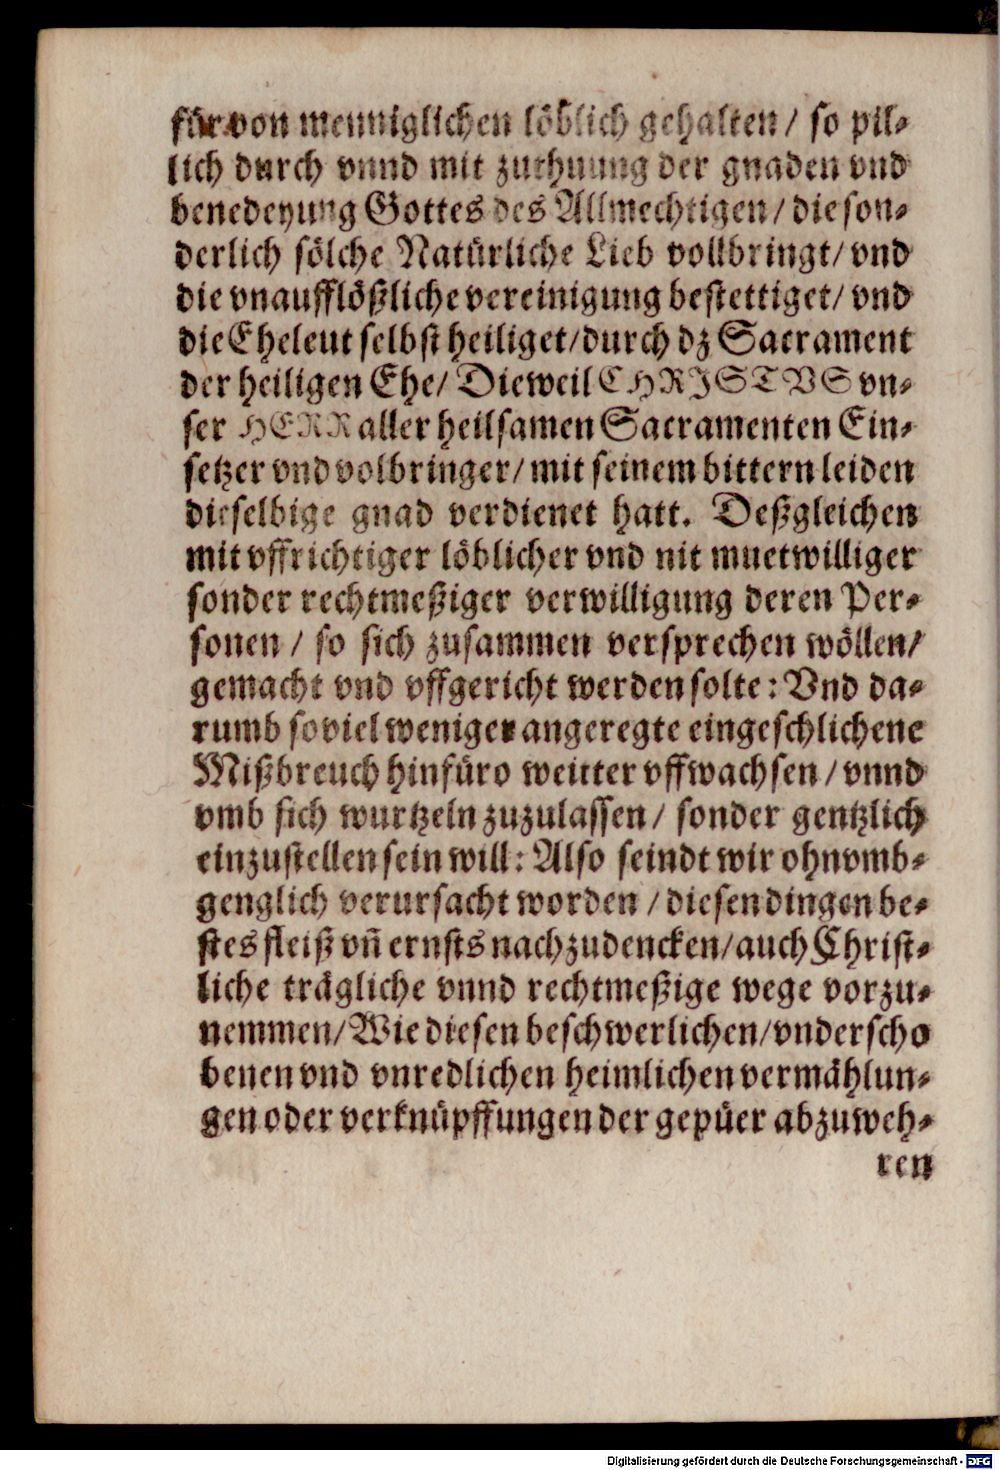 für von menniglichen löblich gehalten / so pil⸗
lich durch vnnd mit zuthuung der gnaden vnd
benedeyung Gottes des Allmechtigen / die son⸗
derlich sölche Natürliche Lieb vollbringt / vnd
die vnaufflößliche vereinigung bestettiget / vnd
die Eheleut selbst heiliget / durch dz Sacrament
der heiligen Ehe / Dieweil CHRISTVS vn⸗
ser HERR aller heilsamen Sacramenten Ein⸗
setzer vnd volbringer / mit seinem bittern leiden
dieselbige gnad verdienet hatt. Deßgleichen
mit vffrichtiger löblicher vnd nit muetwilliger
sonder rechtmeßiger verwilligung deren Per⸗
sonen / so sich zusammen versprechen wöllen /
gemacht vnd vffgericht werden solte: Vnd da⸗
rumb soviel weniger angeregte eingeschlichene
Mißbreuch hinfüro weitter vffwachsen / vnnd
vmb sich wurtzeln zuzulassen / sonder gentzlich
einzustellen sein will: Also seindt wir ohnvmb⸗
genglich verursacht worden / diesen dingen be⸗
stes fleiß vñ ernsts nachzudencken / auch Christ⸗
liche trägliche vnnd rechtmeßige wege vorzu⸗
nemmen / Wie diesen beschwerlichen / vnderscho
benen vnd vnredlichen heimlichen vermählun⸗
gen oder verknüpffungen der gepüer abzuweh⸗
ren
Digitalisierung gefördert durch die Deutsche Forschungsgemeinschaft - DFG